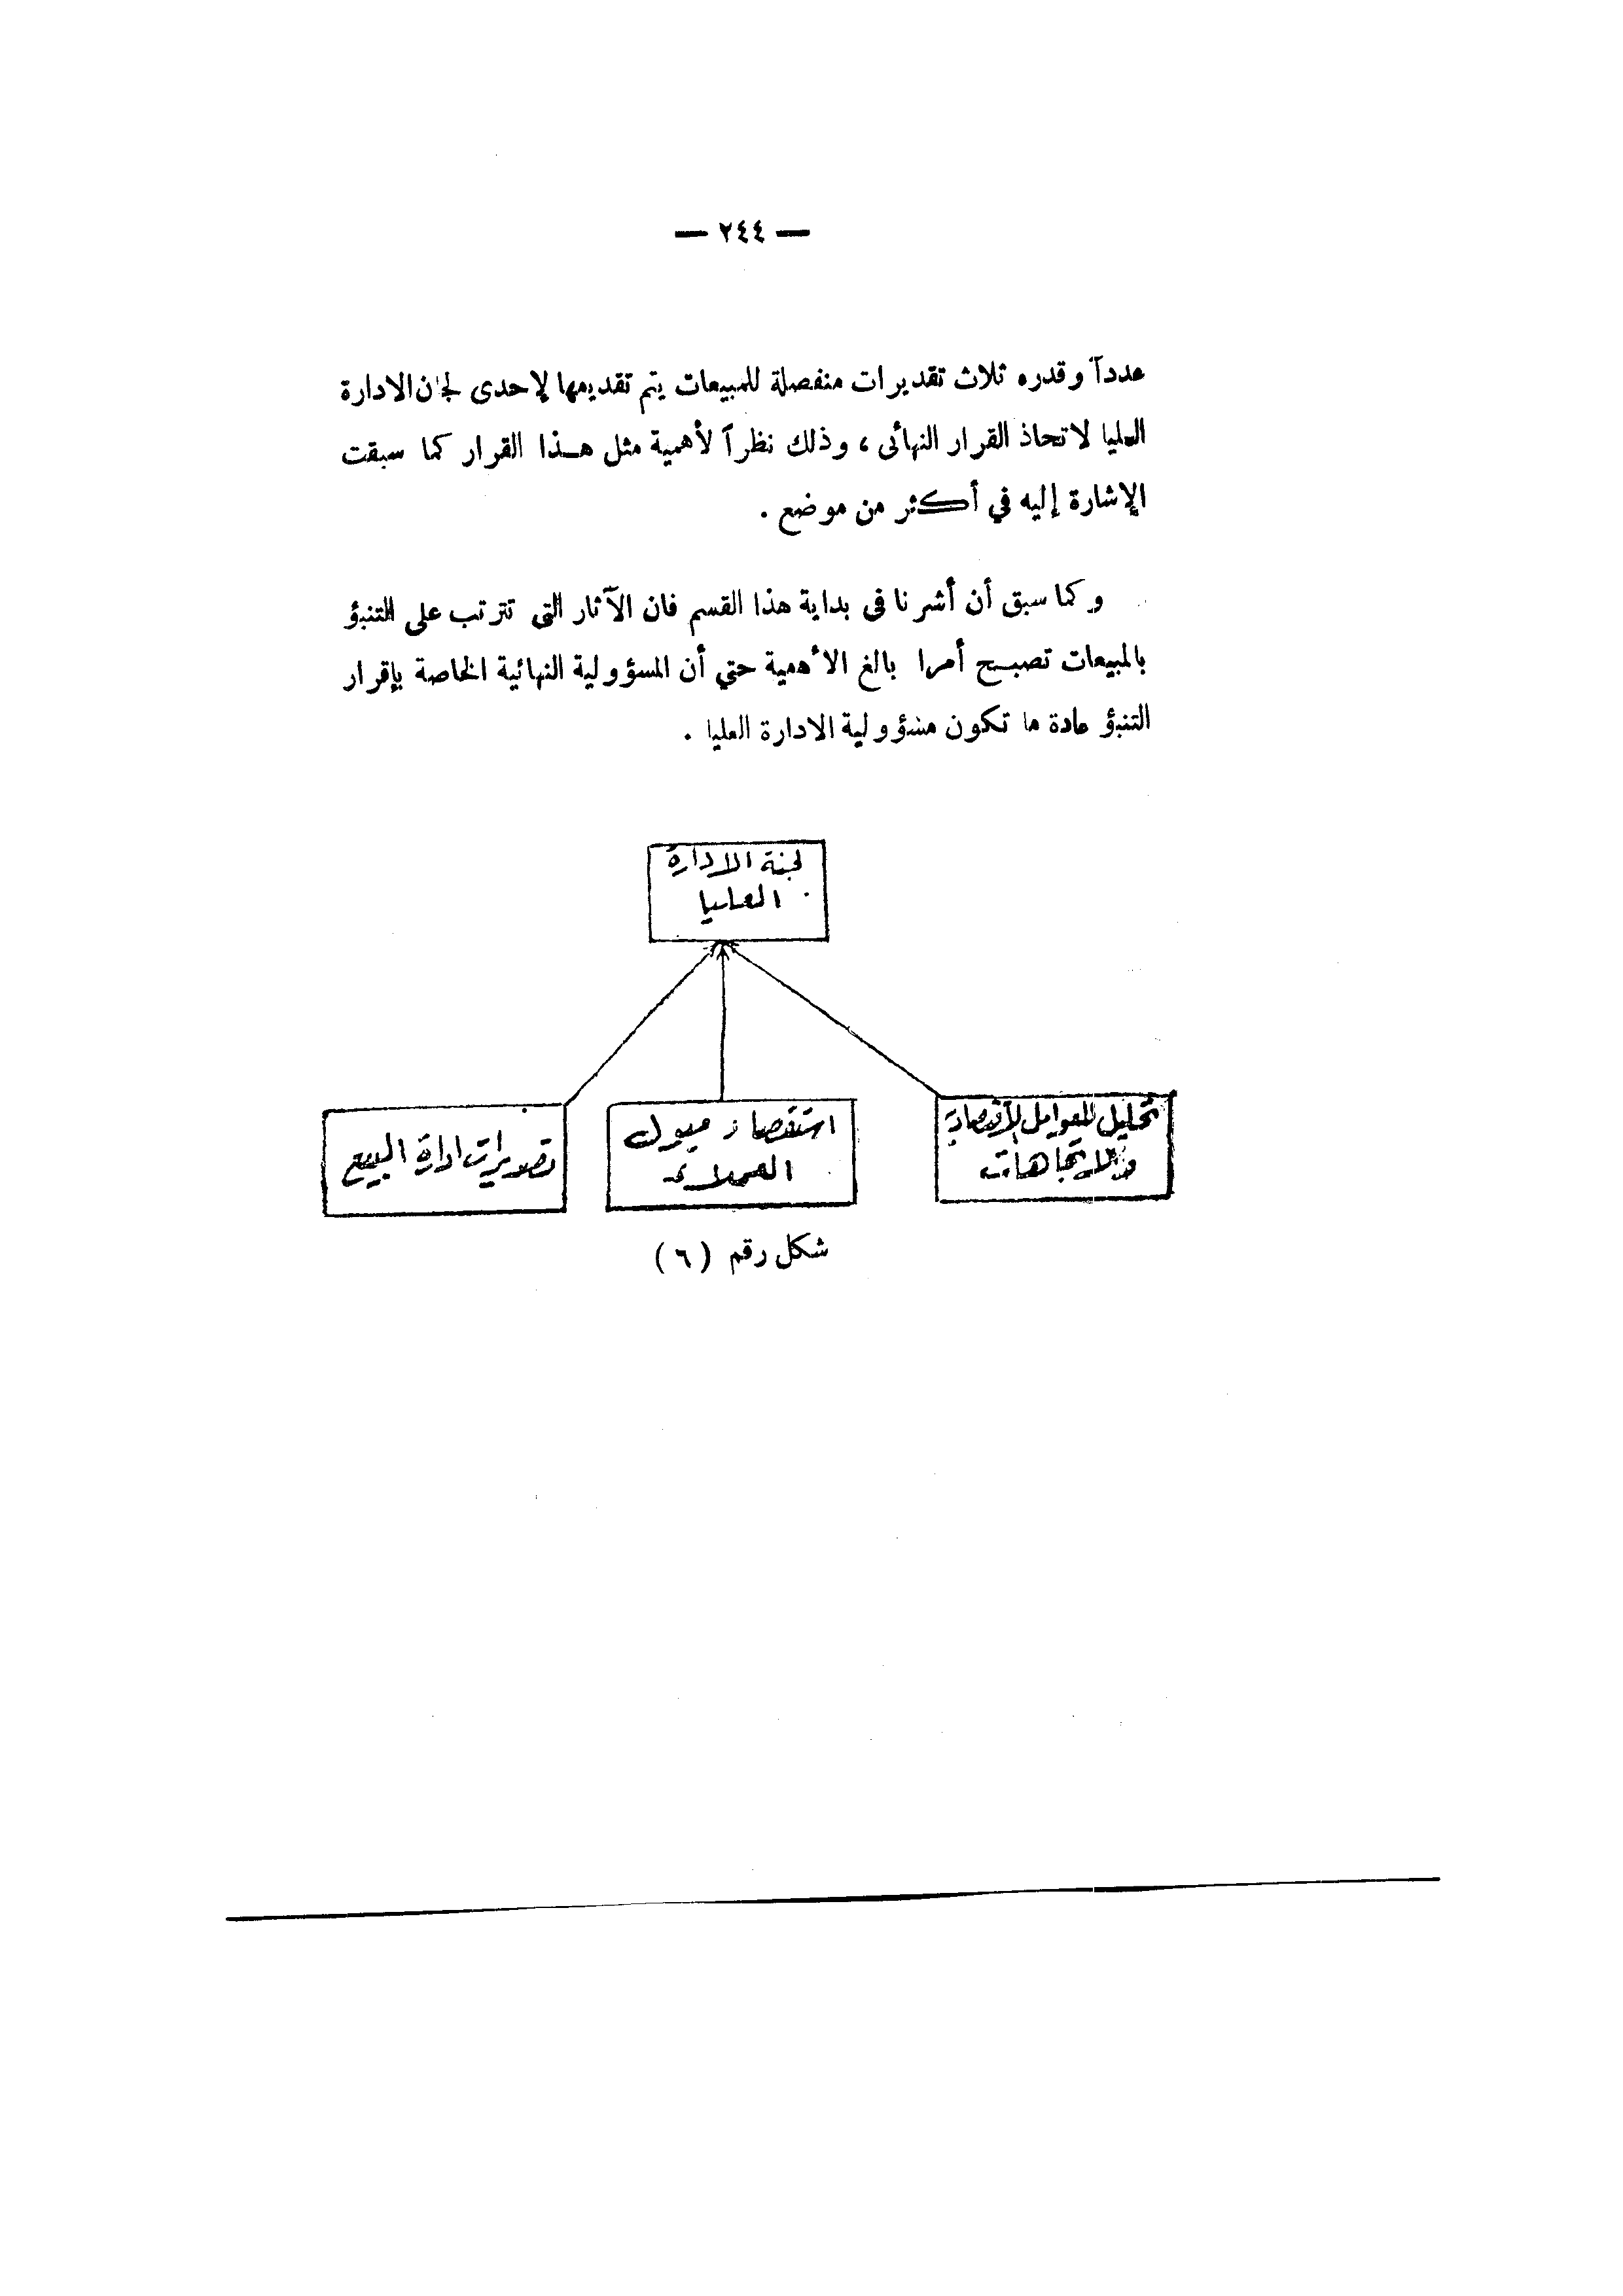 — ٢٤٤ —
عدداً وقدره ثلاث تقديرات منفصلة للمبيعات يتم تقديمها لإحدى لجان الادارة
العليا لاتخاذ القرار النهائى ، وذلك نظراً لأهمية مثل هـذا القرار كما سبقت
الإشارة إليه في أكثر من موضع .
وكما سبق أن أشرنا فى بداية هذا القسم فان الآثار التى تترتب على التنبؤ
بالمبيعات تصبـح أمرا بالغ الأهمية حتي أن المسؤولية النهائية الخاصة بإقرار
التنبؤ عادة ما تكون مسؤولية الادارة العليا .
لجنة الادارة
العليا
تحليل للعوامل الاقتصادية
والاتجاهات
استقصاء ميول
العملاء
ادارة البيع
شكل رقم (٦)